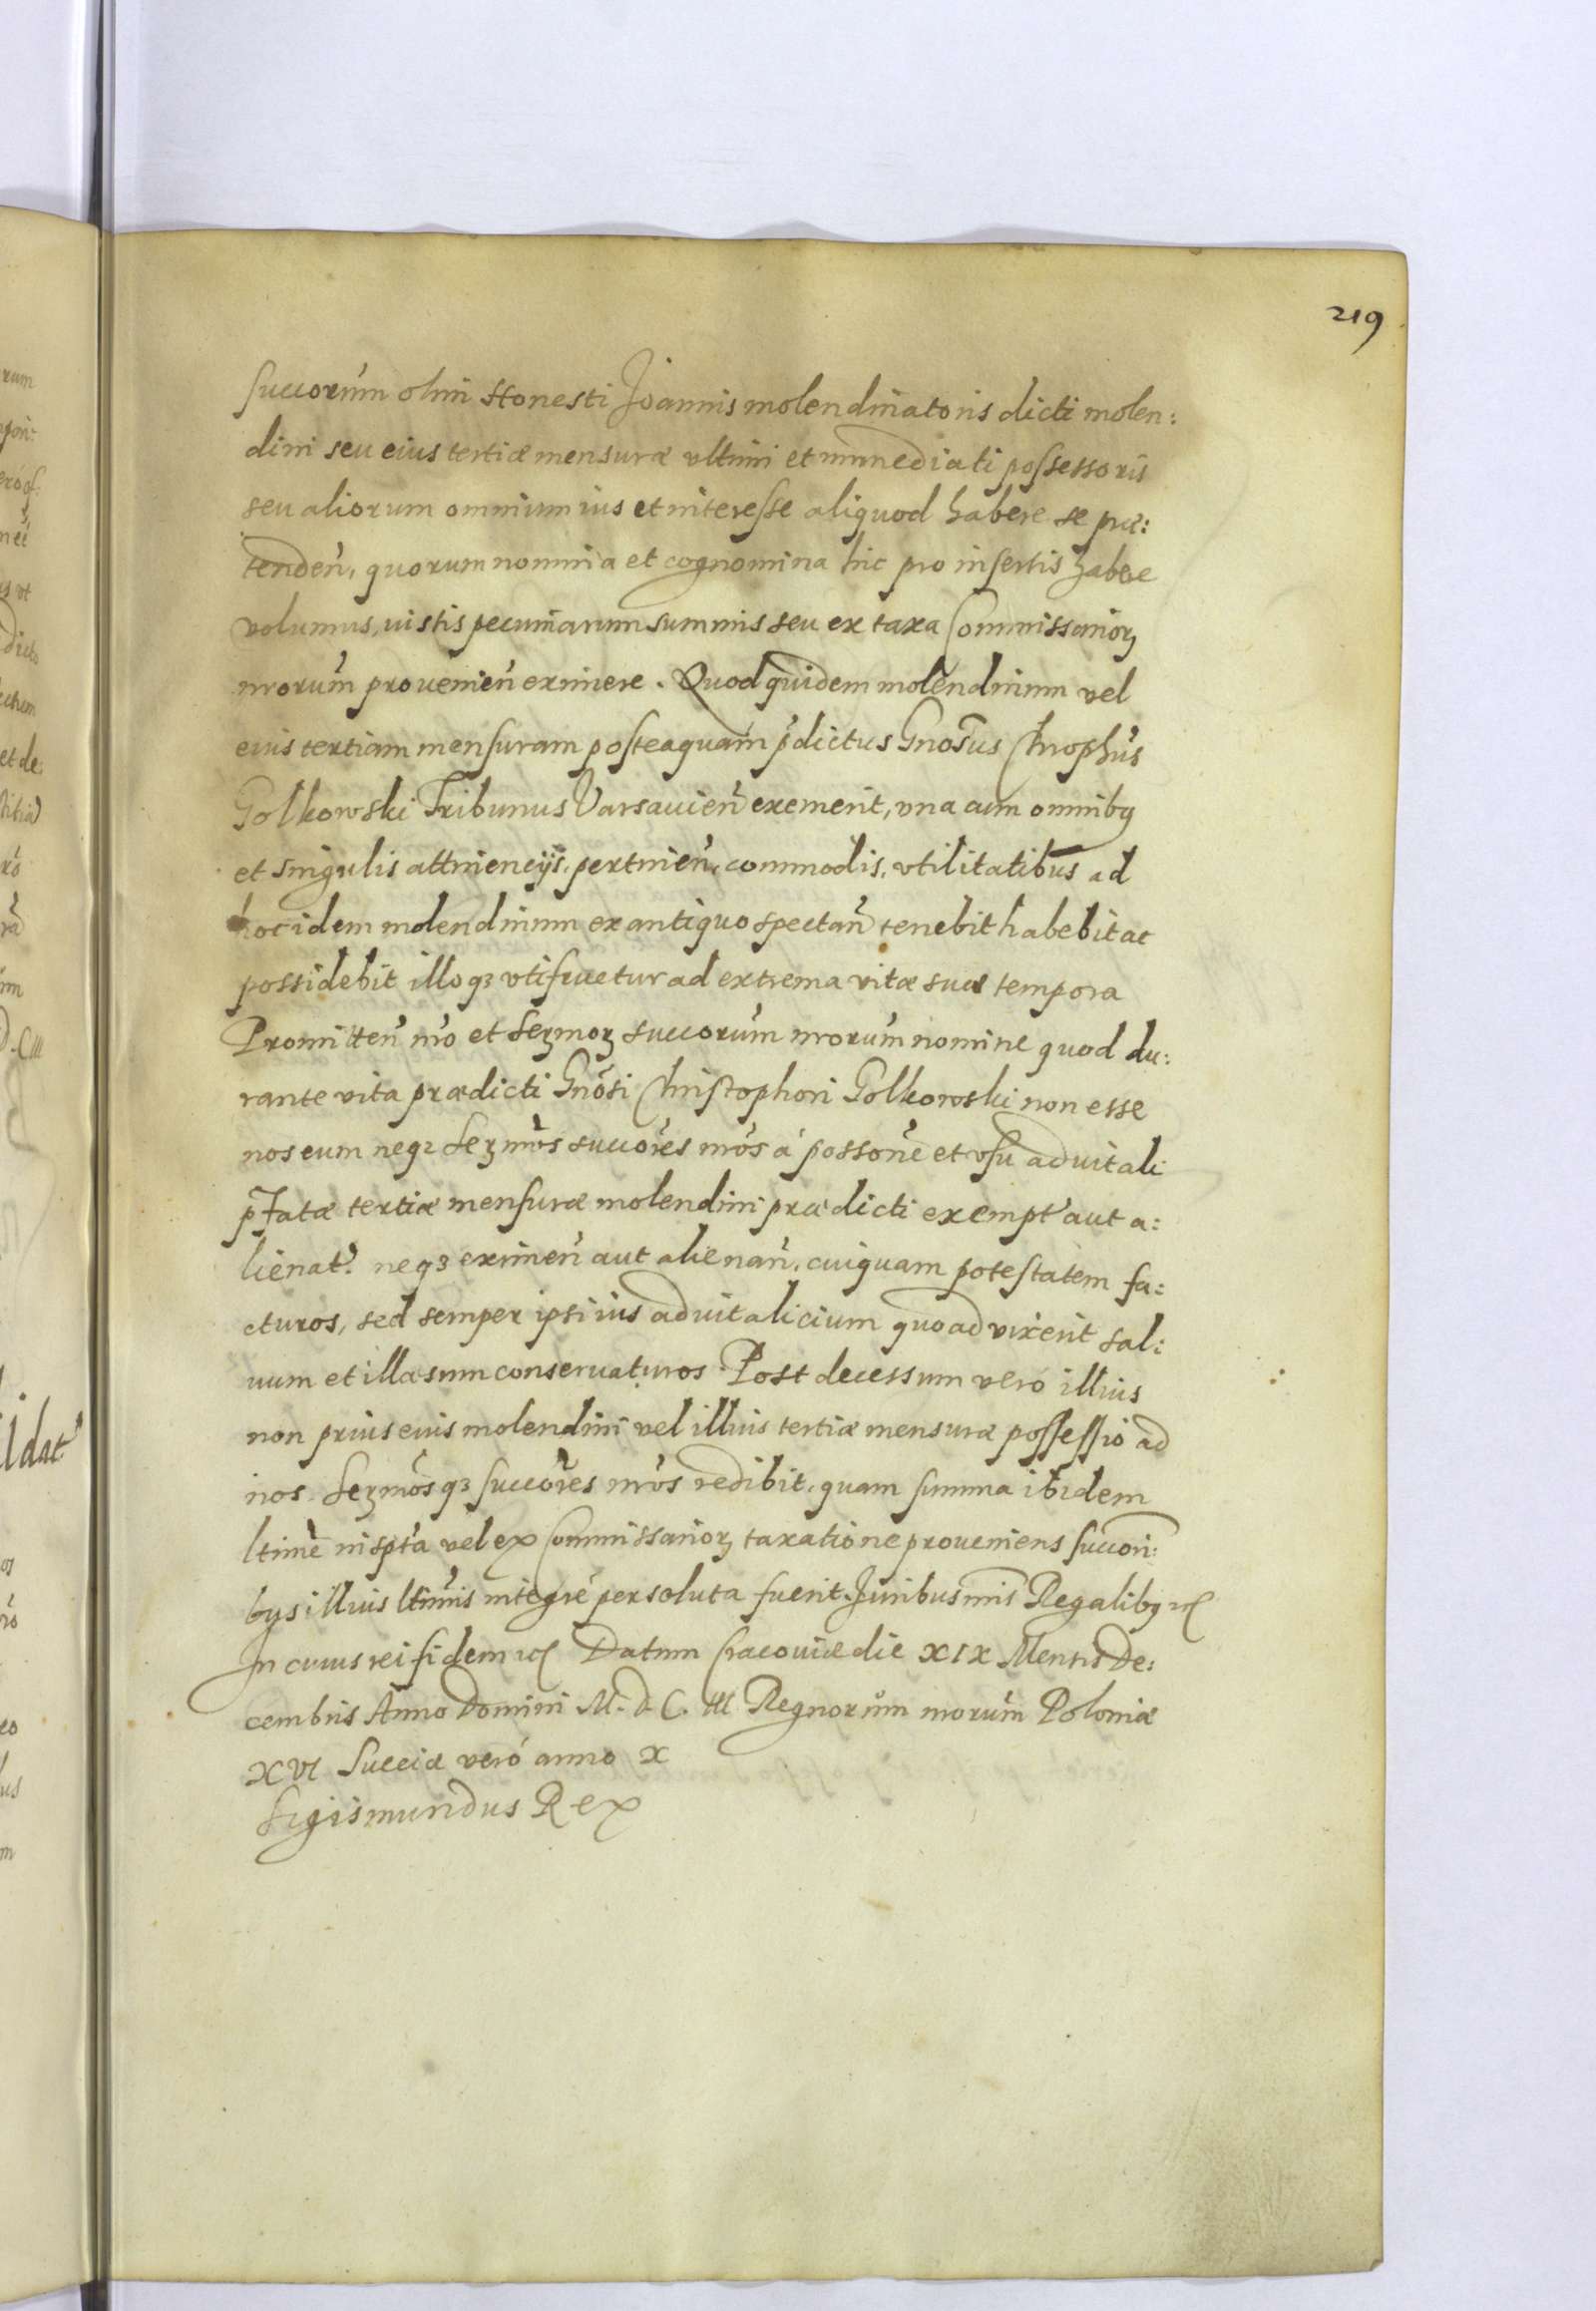 219
succorum olim Honesti Joannis molendinatoris dicti molen:
dini seu eius tertiæ mensuræ vltimi et immediati possessoris
seu aliorum omnium ius et interesse aliquod habere se præ:
tenden, quorum nomina et cognomina hic pro insertis habere
volumus, iustis pecuniarum summis seu ex taxa Commissarioꝝ
nrorum prouenien eximere. Quod quidem molendinum vel
eius tertiam mensuram posteaquam pdictus Gnosus Chrophus
Golkowski Tribunus Varsauien exemerit, vna cum omnibꝯ
et singulis attinencijs, pertinen, commodis, vtilitatibus ad
hoc idem molendinum ex antiquo spectan tenebit habebit ac
possidebit illoqꝫ vtifruetur ad extrema vitæ suæ tempora
Promitten nro et Serꝫmoꝝ succorum nrorum nomine quod du:
rante vita prædicti Gnosi Christophori Golkowski non esse
nos eum neqꝫ Serꝫmos succores nros a possone et vsu aduitali
pfatæ tertiæ mensuræ molendini prædicti exempt aut a:
lienat. neqꝫ eximen aut alienan, cuiquam potestatem fa:
cturos, sed semper ipsi ius aduitalicium quoad vixerit sal:
uum et illæsum conseruaturos. Post decessum vero illius
non prius eius molendini vel illius tertiæ mensuræ possessio ad
nos Serꝫmosqꝫ succores nros redibit, quam summa ibidem
ltime inspta vel ex Commissarioꝝ taxatione proueniens succori:
bus illius ltimis integre persoluta fuerit. Juribus nris Regalibꝯ etc
In cuius rei fidem etc Datum Cracouiæ die XIX Mensis De:
cembris Anno Domini M. D. C. III Regnorum nrorum Poloniæ
XVI Sueciæ veró anno X
Sigismundus Rex